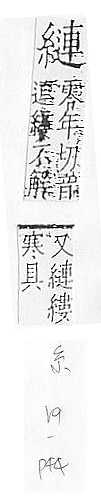 縺
零年切謰
謱不解
又縺縷
寒具
糸
19
-
P44